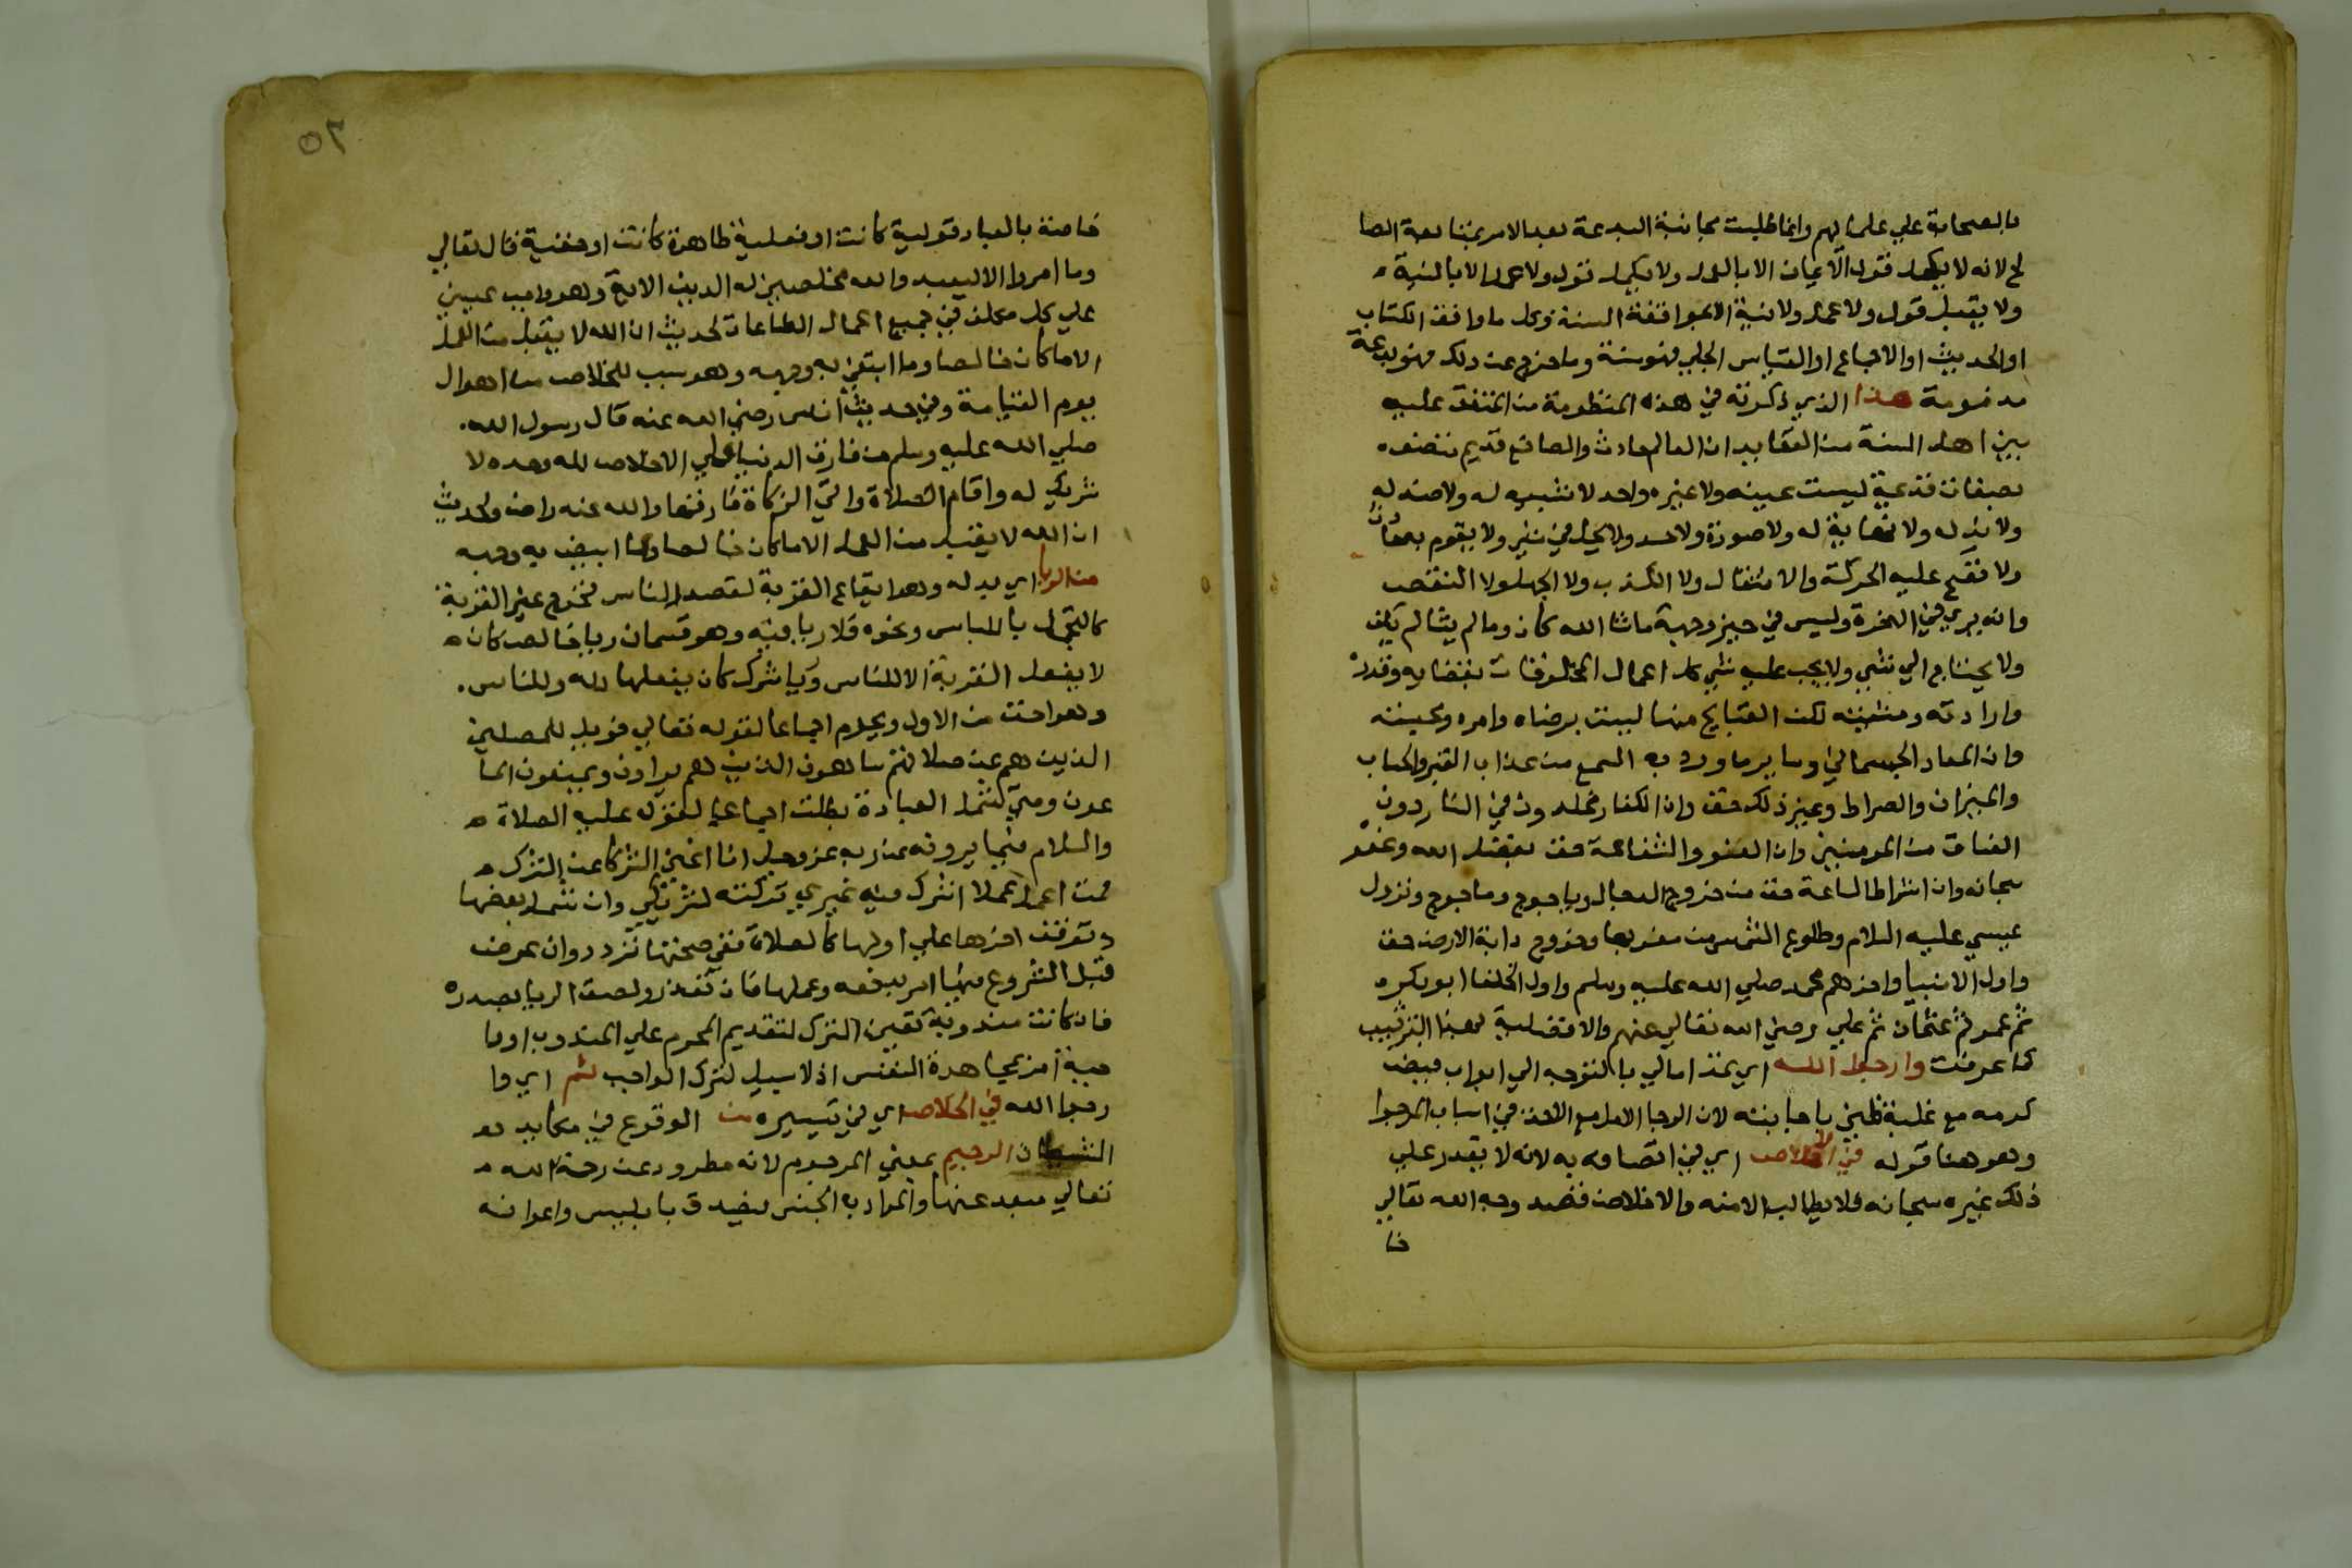 بالصحابة علي علمائهم وانما طلبت مجانبة البدعة بعد الامر بمتابعة الصا
لح لانه لا يكمل قول الايمان الا بالعمل ولا يكمل قول ولا عمل الا بالنية
ولا يقبل قول ولا عمل ولا نية الا بموافقة السنة وكل ما وافق الكتاب
او الحديث او الاجماع او القياس الجلي فهو سنة وما خرج عن ذلك فهو بدعة
مذمومة هذا الذي ذكرته في هذه المنظومة من المتفق عليه
بين اهل السنة من العقايد ان العالم حادث والصانع قديم متصف
بصفات قديمة ليست عينه ولا غيره واحد لا شبيه له ولا ضد له
ولا ند له ولا نهاية له ولا صورة ولا حد ولا يحل في شي ولا يقوم به حادث
ولا تصح عليه الحركة والانتقال ولا الكذب ولا الجهل ولا النقص
وانه يري في الاخرة وليس في حيز وجهة ما شا الله كان وما لم يشا لم يكن
ولا يحتاج الي شي ولا يجب عليه شي كل اعمال المخلوقات بقضايه وقدره
وارادته ومشيئته لكن القبايح منها ليست برضاه وامره ومحبته
وان المعاد الجسماني وساير ما ورد به السمع من عذاب القبر والحساب
والميزان والصراط وغير ذلك حق وان الكفار مخلدون في النار دون
الفساق من المومنين وان العفو والشفاعة حق بفضل الله وعفوه
سبحانه وان اشراط الساعة حق من خروج الدجال وياجوج وماجوج ونزول
عيسي عليه السلام وطلوع الشمس من مغربها وخروج دابة الارض حق
واول الانبيا واخرهم محمد صلي الله عليه وسلم واول الخلفا ابو بكر
ثم عمر ثم عثمان ثم علي رضي الله تعالي عنهم والافضلية بهذا الترتيب
كما عرفت وارجوا الله اي مدا مالي بالتوجه الي ابواب فيض
كرمه مع غلبة ظني باجابته لان الرجا الامل مع الاخذ في اسباب المرجوا
وهو هنا قوله في الاخلاص اي في اتصافه به لانه لا يقدر علي
ذلك غيره سبحانه فلا يطالب الا منه والاخلاص قصد وجه الله تعالي
خا
٥٢
خاصة بالعباد قولية كانت او فعلية ظاهرة كانت او خفية قال تعالي
وما امروا الا ليعبدوا الله مخلصين له الدين الاية وهو واجب عيني
علي كل مكلف في جميع اعمال الطاعات لحديث ان الله لا يقبل من العمل
الا ما كان خالصا وما ابتغي به وجهه وهو سبب للخلاص من اهوال
يوم القيامة وفي حديث انس رضي الله عنه قال رسول الله
صلي الله عليه وسلم من فارق الدنيا علي الاخلاص لله وحده لا
شريك له واقام الصلاة واتي الزكاة فارقها والله عنه راض ولحديث
ان الله لا يقبل من العمل الا ما كان خالصا وما ابتغي به وجهه
من الريا اي بدله وهو ايقاع القربة لقصد الناس فخرج غير القربة
كالتجمل باللباس ونحوه فلا ريا فيه وهو قسمان ريا خالص كان
لا يفعل القربة الا للناس وريا شرك كان يفعلها لله وللناس
وهو اخف من الاول ويحرم اجماعا لقوله تعالي فويل للمصلين
الذين هم عن صلاتهم ساهون الذين هم يراون ويمنعون الما
عون ومتي شمل العبادة بطلت اجماعا لقوله عليه الصلاة
والسلام فيما يرويه عن ربه عز وجل انا اغني الشركا عن الشرك
فمن عمل عملا اشرك فيه غيري تركته لشريكي وان شمل بعضها
وتوقف اخرها علي اولها كالصلاة ففي صحتها تردد وان عرض
قبل الشروع فيها امر بدفعه وعملها فان تعذر ولصق الريا بصدره
فان كانت مندوبة تعين الترك لتقديم المحرم علي المندوب او وا
جبة امر بمجاهدة النفس اذ لا سبيل لترك الواجب ثم اي وا
رجوا الله في الخلاص اي في تيسيره من الوقوع في مكايد
الشيطان الرجيم بمعني المرجوم لانه مطرود عن رحمة الله
تعالي مبعد عنها والمراد به الجنس فيصدق بابليس واعوانه